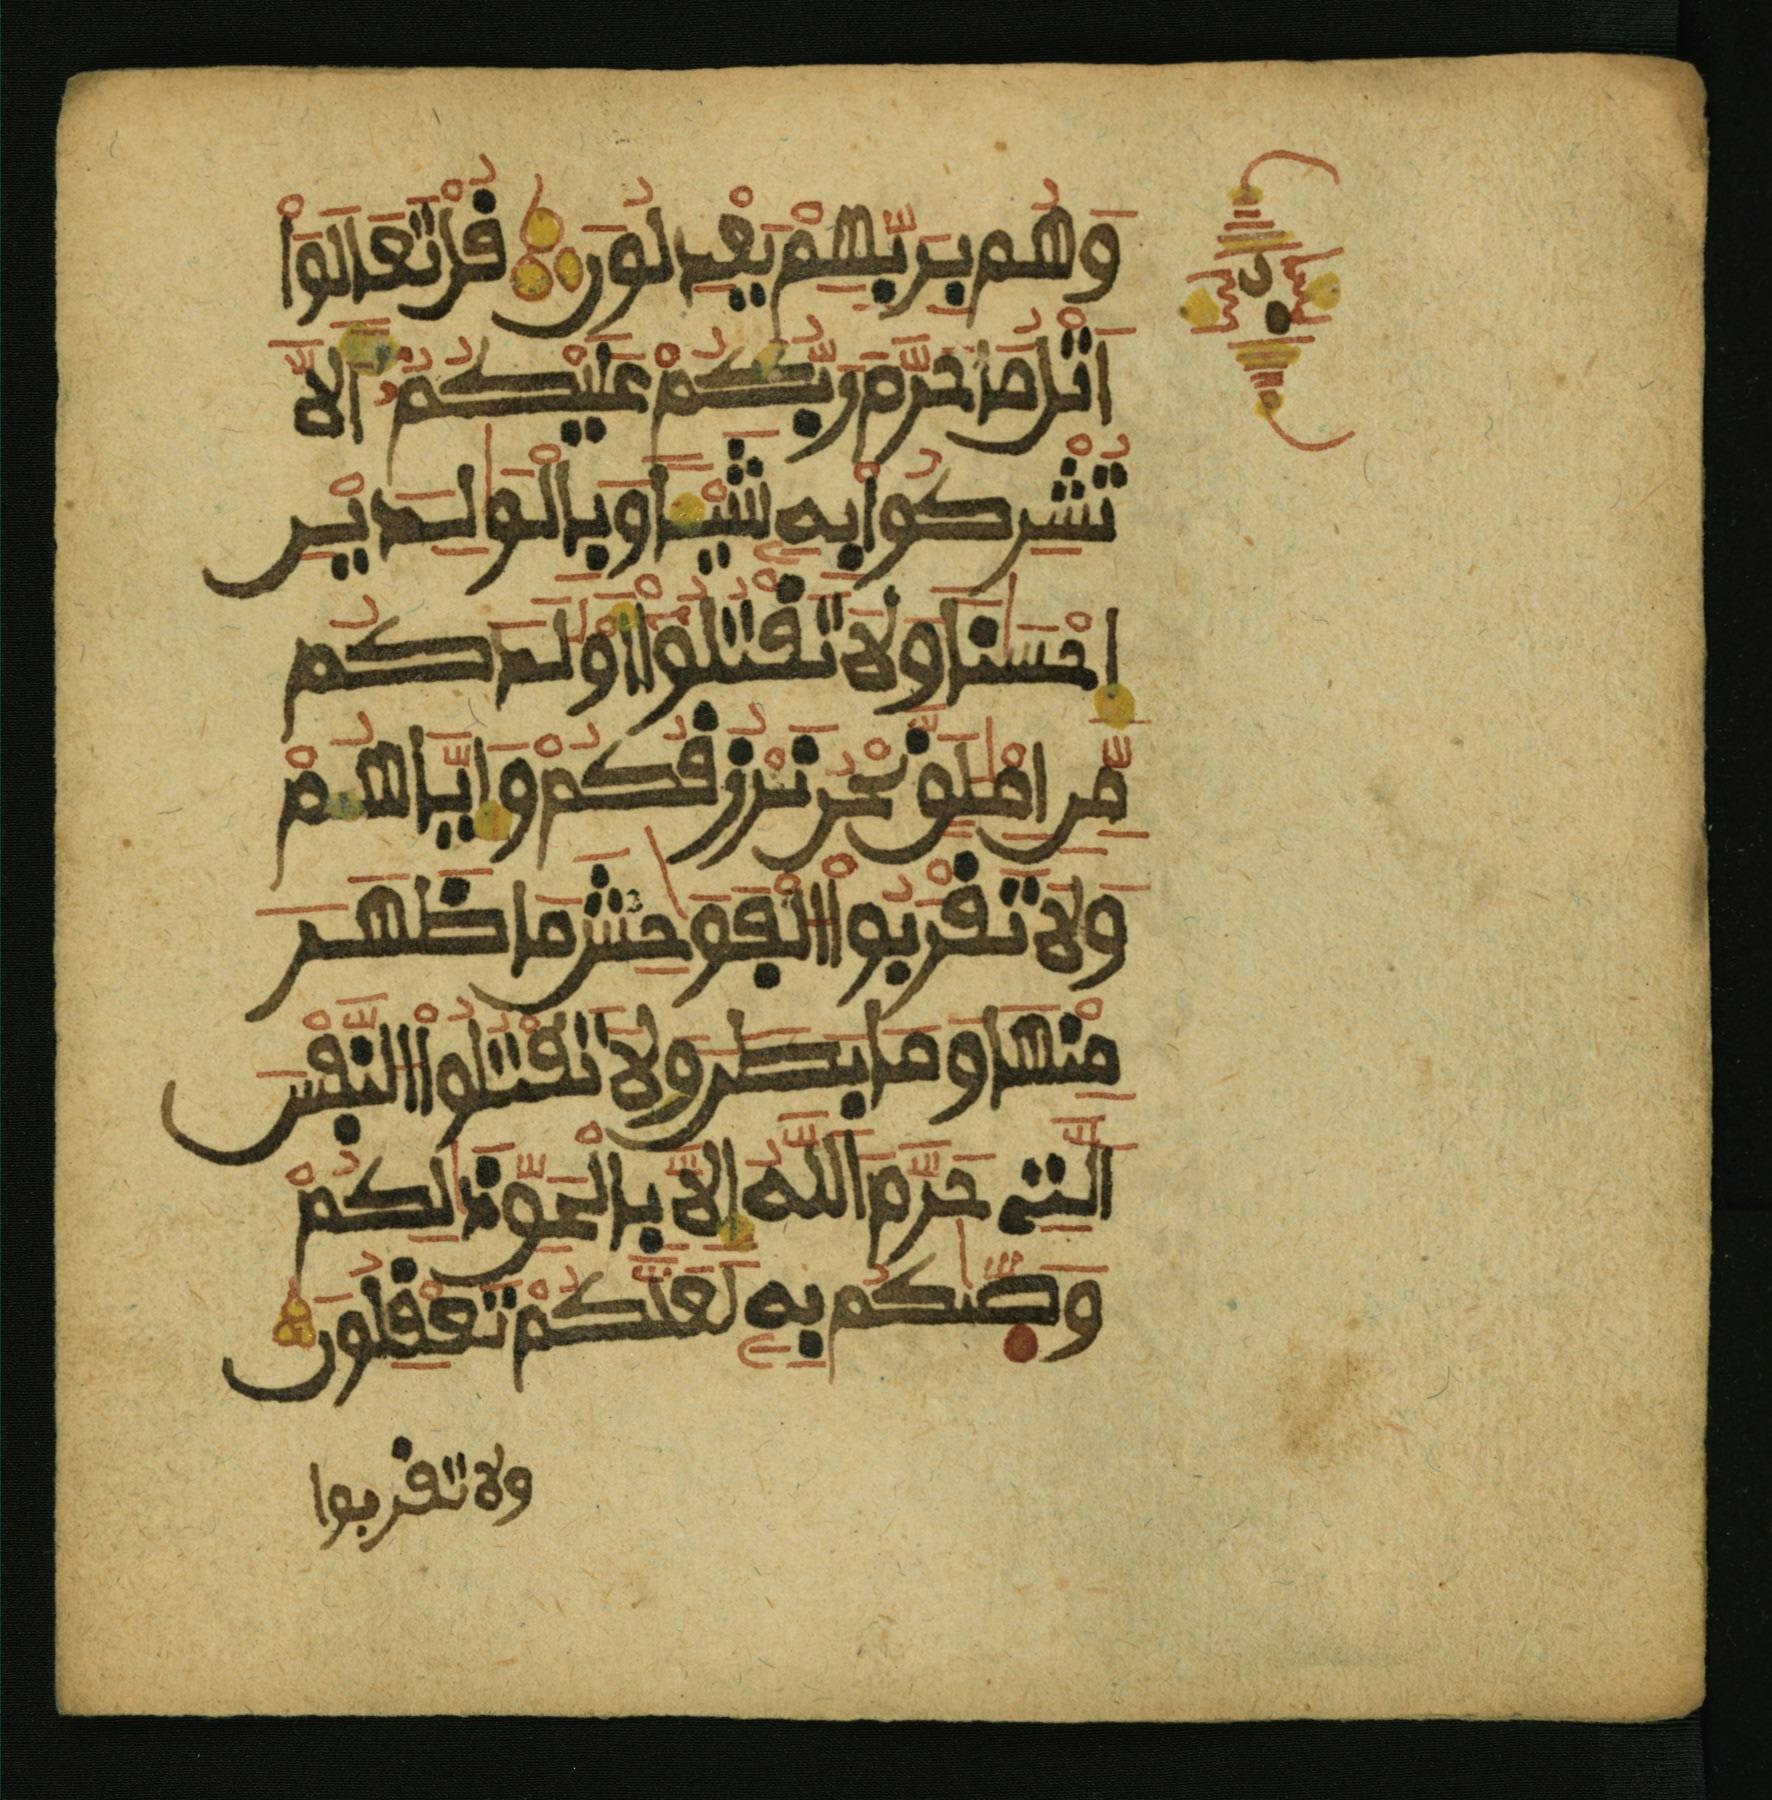 وَهُم بِرَبِّهِمْ يَعْدِلُونَ قُلْ تَعَالَوْاْ
اَتْلُ مَا حَرَّمَ رَبُّكُمْ عَلَيْكُمُ أَلاَّ
تُشْرِكُواْ بِهِ شَيْئاً وَبِالْوَلِدَيْنِ
إِحْسَناً وَلاَ تَقْتُلُواْ أَوْلَدَكُم
مِّنِ امْلَقٍ نَّحْنُ نَرْزُقُكُمْ وَإِيَّاهُمْ
وَلاَ تَقْرَبُواْ الْفَوَحِشَ مَا ظَهَرَ
مِنْهَا وَمَا بَطَنَ وَلاَ تَقْتُلُواْ النَّفْسَ
الَّتِي حَرَّمَ اللَّهُ إِلاَّ بِالْحَقِّ ذَلِكُمْ
وَصَّكُم بِهِ لَعَلَّكُمْ تَعْقِلُونَ
ولا تقربوا